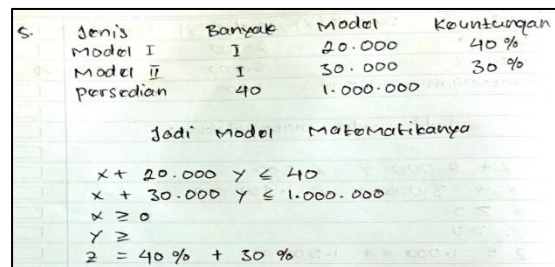 5. Jenis Banyak Model Keuntungan
Model I I 20.000 40 %
Model II I 30.000 30 %
persedian 40 1.000.000
Jadi Model Matematikanya
x + 20.000 y ≤ 40
x + 30.000 y ≤ 1.000.000
x ≥ 0
y ≥
z = 40 % + 30 %